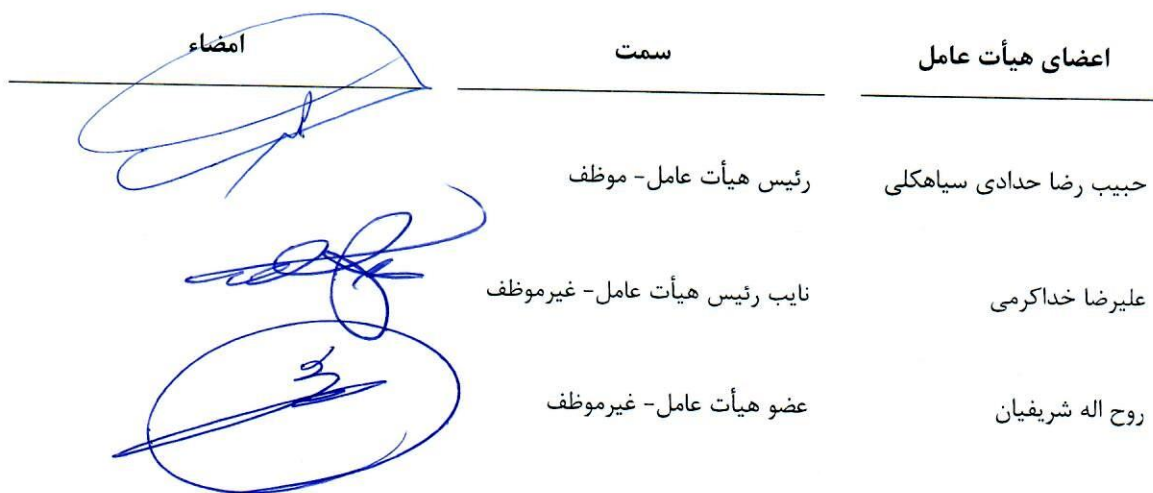 اعضای هیأت عامل سمت امضاء
حبیب رضا حدادی سیاهکلی رئیس هیأت عامل- موظف
علیرضا خداکرمی نایب رئیس هیأت عامل- غیرموظف
روح اله شریفیان عضو هیأت عامل- غیرموظف